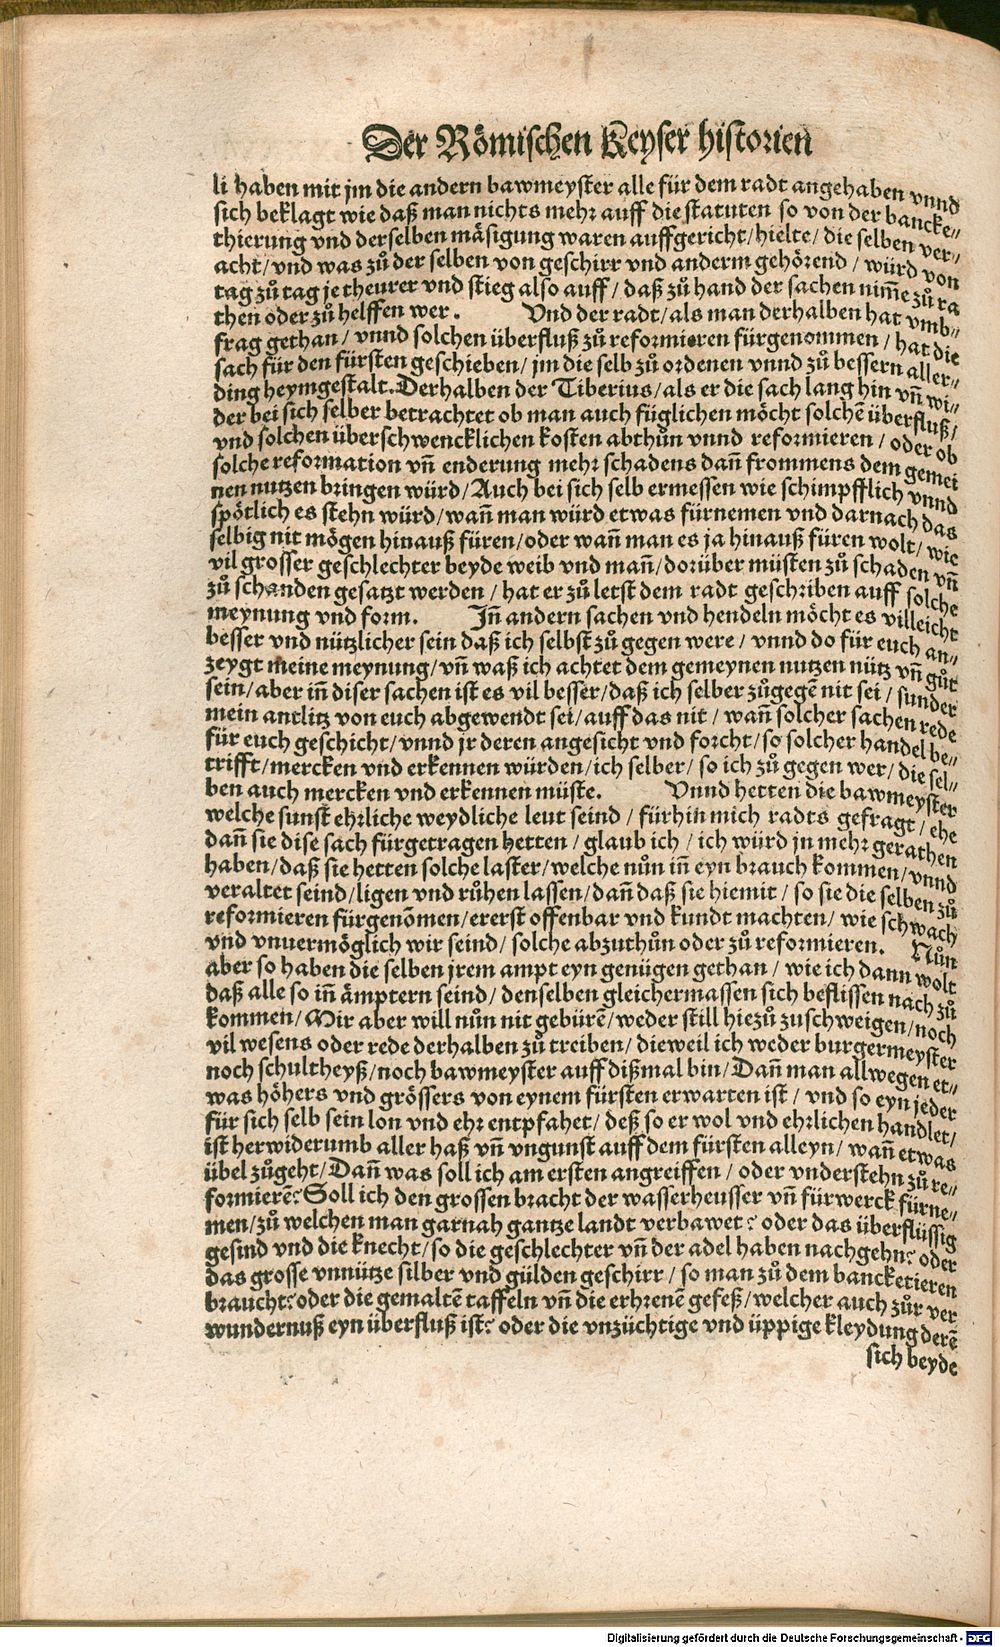 Der Römischen Keyser historien
li haben mit jm die andern bawmeyster alle für dem radt angehaben vnnd
sich beklagt wie daß man nichts mehr auff die statuten so von der bancke⸗
thierung vnd derselben mäsigung waren auffgericht/hielte/ die selben ver⸗
acht/vnd was zů der selben von geschirr vnd anderm gehörend / würd von
tag zů tag je theurer vnd stieg also auff / daß zů hand der sachen nim̃e zů ra
then oder zů helffen wer . Vnd der radt/als man derhalben hat vmb⸗
frag gethan / vnnd solchen überfluß zů reformieren fürgenommen / hat die
sach für den fürsten geschieben/ jm die selb zů ordenen vnnd zů bessern aller⸗
ding heymgestalt. Derhalben der Tiberius/als er die sach lang hin vñ wi⸗
der bei sich selber betrachtet ob man auch füglichen möcht solchẽ überfluß/
vnd solchen überschwencklichen kosten abthůn vnnd reformieren / oder ob
solche reformation vñ enderung mehr schadens dañ frommens dem gemei
nen nutzen bringen würd/Auch bei sich selb ermessen wie schimpfflich vnnd
spötlich es stehn würd/wañ man würd etwas fürnemen vnd darnach das
selbig nit mögen hinauß füren/oder wañ man es ja hinauß füren wolt/ wie
vil grosser geschlechter beyde weib vnd mañ/dorüber müsten zů schaden vñ
zů schanden gesatzt werden / hat er zů letst dem radt geschriben auff solche
meynung vnd form. Jñ andern sachen vnd hendeln möcht es villeicht
besser vnd nützlicher sein daß ich selbst zů gegen were / vnnd do für euch an⸗
zeygt meine meynung/vñ waß ich achtet dem gemeynen nutzen nütz vñ gůt
sein/aber iñ diser sachen ist es vil besser/daß ich selber zůgegẽ nit sei / sunder
mein antlitz von euch abgewendt sei/auff das nit / wañ solcher sachen rede
für euch geschicht/vnnd jr deren angesicht vnd forcht/so solcher handel be⸗
trifft/mercken vnd erkennen würden/ich selber/ so ich zů gegen wer/ die sel⸗
ben auch mercken vnd erkennen müste. Vnnd hetten die bawmeyster
welche sunst ehrliche weydliche leut seind / fürhin mich radts gefragt / ehe
dañ sie dise sach fürgetragen hetten / glaub ich / ich würd jn mehr gerathen
haben/daß sie hetten solche laster/welche nůn iñ eyn brauch kommen/vnnd
veraltet seind/ligen vnd růhen lassen/dañ daß sie hiemit / so sie die selben zů
reformieren fürgenõmen/ererst offenbar vnd kundt machten/ wie schwach
vnd vnuermöglich wir seind/ solche abzuthůn oder zů reformieren. Nůn
aber so haben die selben jrem ampt eyn genügen gethan / wie ich dann wolt
daß alle so iñ ämptern seind/ denselben gleichermassen sich beflissen nach zů
kommen/Mir aber will nůn nit gebürẽ/weder still hiezů zuschweigen/noch
vil wesens oder rede derhalben zů treiben/ dieweil ich weder burgermeyster
noch schultheyß/noch bawmeyster auff dißmal bin/Dañ man allwegen et⸗
was höhers vnd grössers von eynem fürsten erwarten ist / vnd so eyn jeder
für sich selb sein lon vnd ehr entpfahet/ deß so er wol vnd ehrlichen handlet/
ist herwiderumb aller haß vñ vngunst auff dem fürsten alleyn/ wañ etwas
übel zůgeht/Dañ was soll ich am ersten angreiffen / oder vnderstehn zů re⸗
formierẽ? Soll ich den grossen bracht der wasserheusser vñ fürwerck fürne⸗
men/zů welchen man garnah gantze landt verbawet? oder das überflüssig
gesind vnd die knecht/so die geschlechter vñ der adel haben nachgehn? oder
das grosse vnnütze silber vnd gülden geschirr / so man zů dem bancketieren
braucht? oder die gemaltẽ taffeln vñ die erhrenẽ gefeß/welcher auch zůr ver
wundernuß eyn überfluß ist? oder die vnzüchtige vnd üppige kleydung derẽ
sich beyde
Digitalisierung gefördert durch die Deutsche Forschungsgemeinschaft - DFG